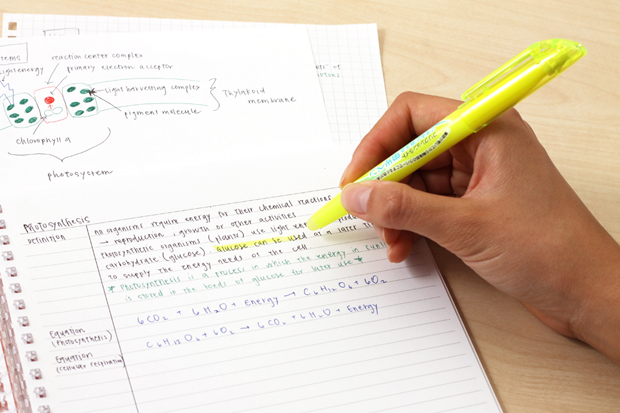 reaction center complex
primary electron acceptor
Light energy
Light harvesting complex
Thylakoid
membrane
pigment molecule
chlorophyll a
photosystem
Photosynthesis
Definition
organisms require energy for their chemical reactions
→ reproduction, growth or other activities
Photosynthetic organisms (plants) use light
carbohydrate (glucose). Glucose can be used at a later
to supply the energy needs of the cell
* Photosynthesis is a process in which the energy in
is stored in the bonds of glucose for later use *
Equation
(Photosynthesis)
6CO₂ + 6H₂O + Energy → C₆H₁₂O₆ + 6O₂
Equation
(Cellular respiration)
C₆H₁₂O₆ + 6O₂ → 6CO₂ + 6H₂O + Energy